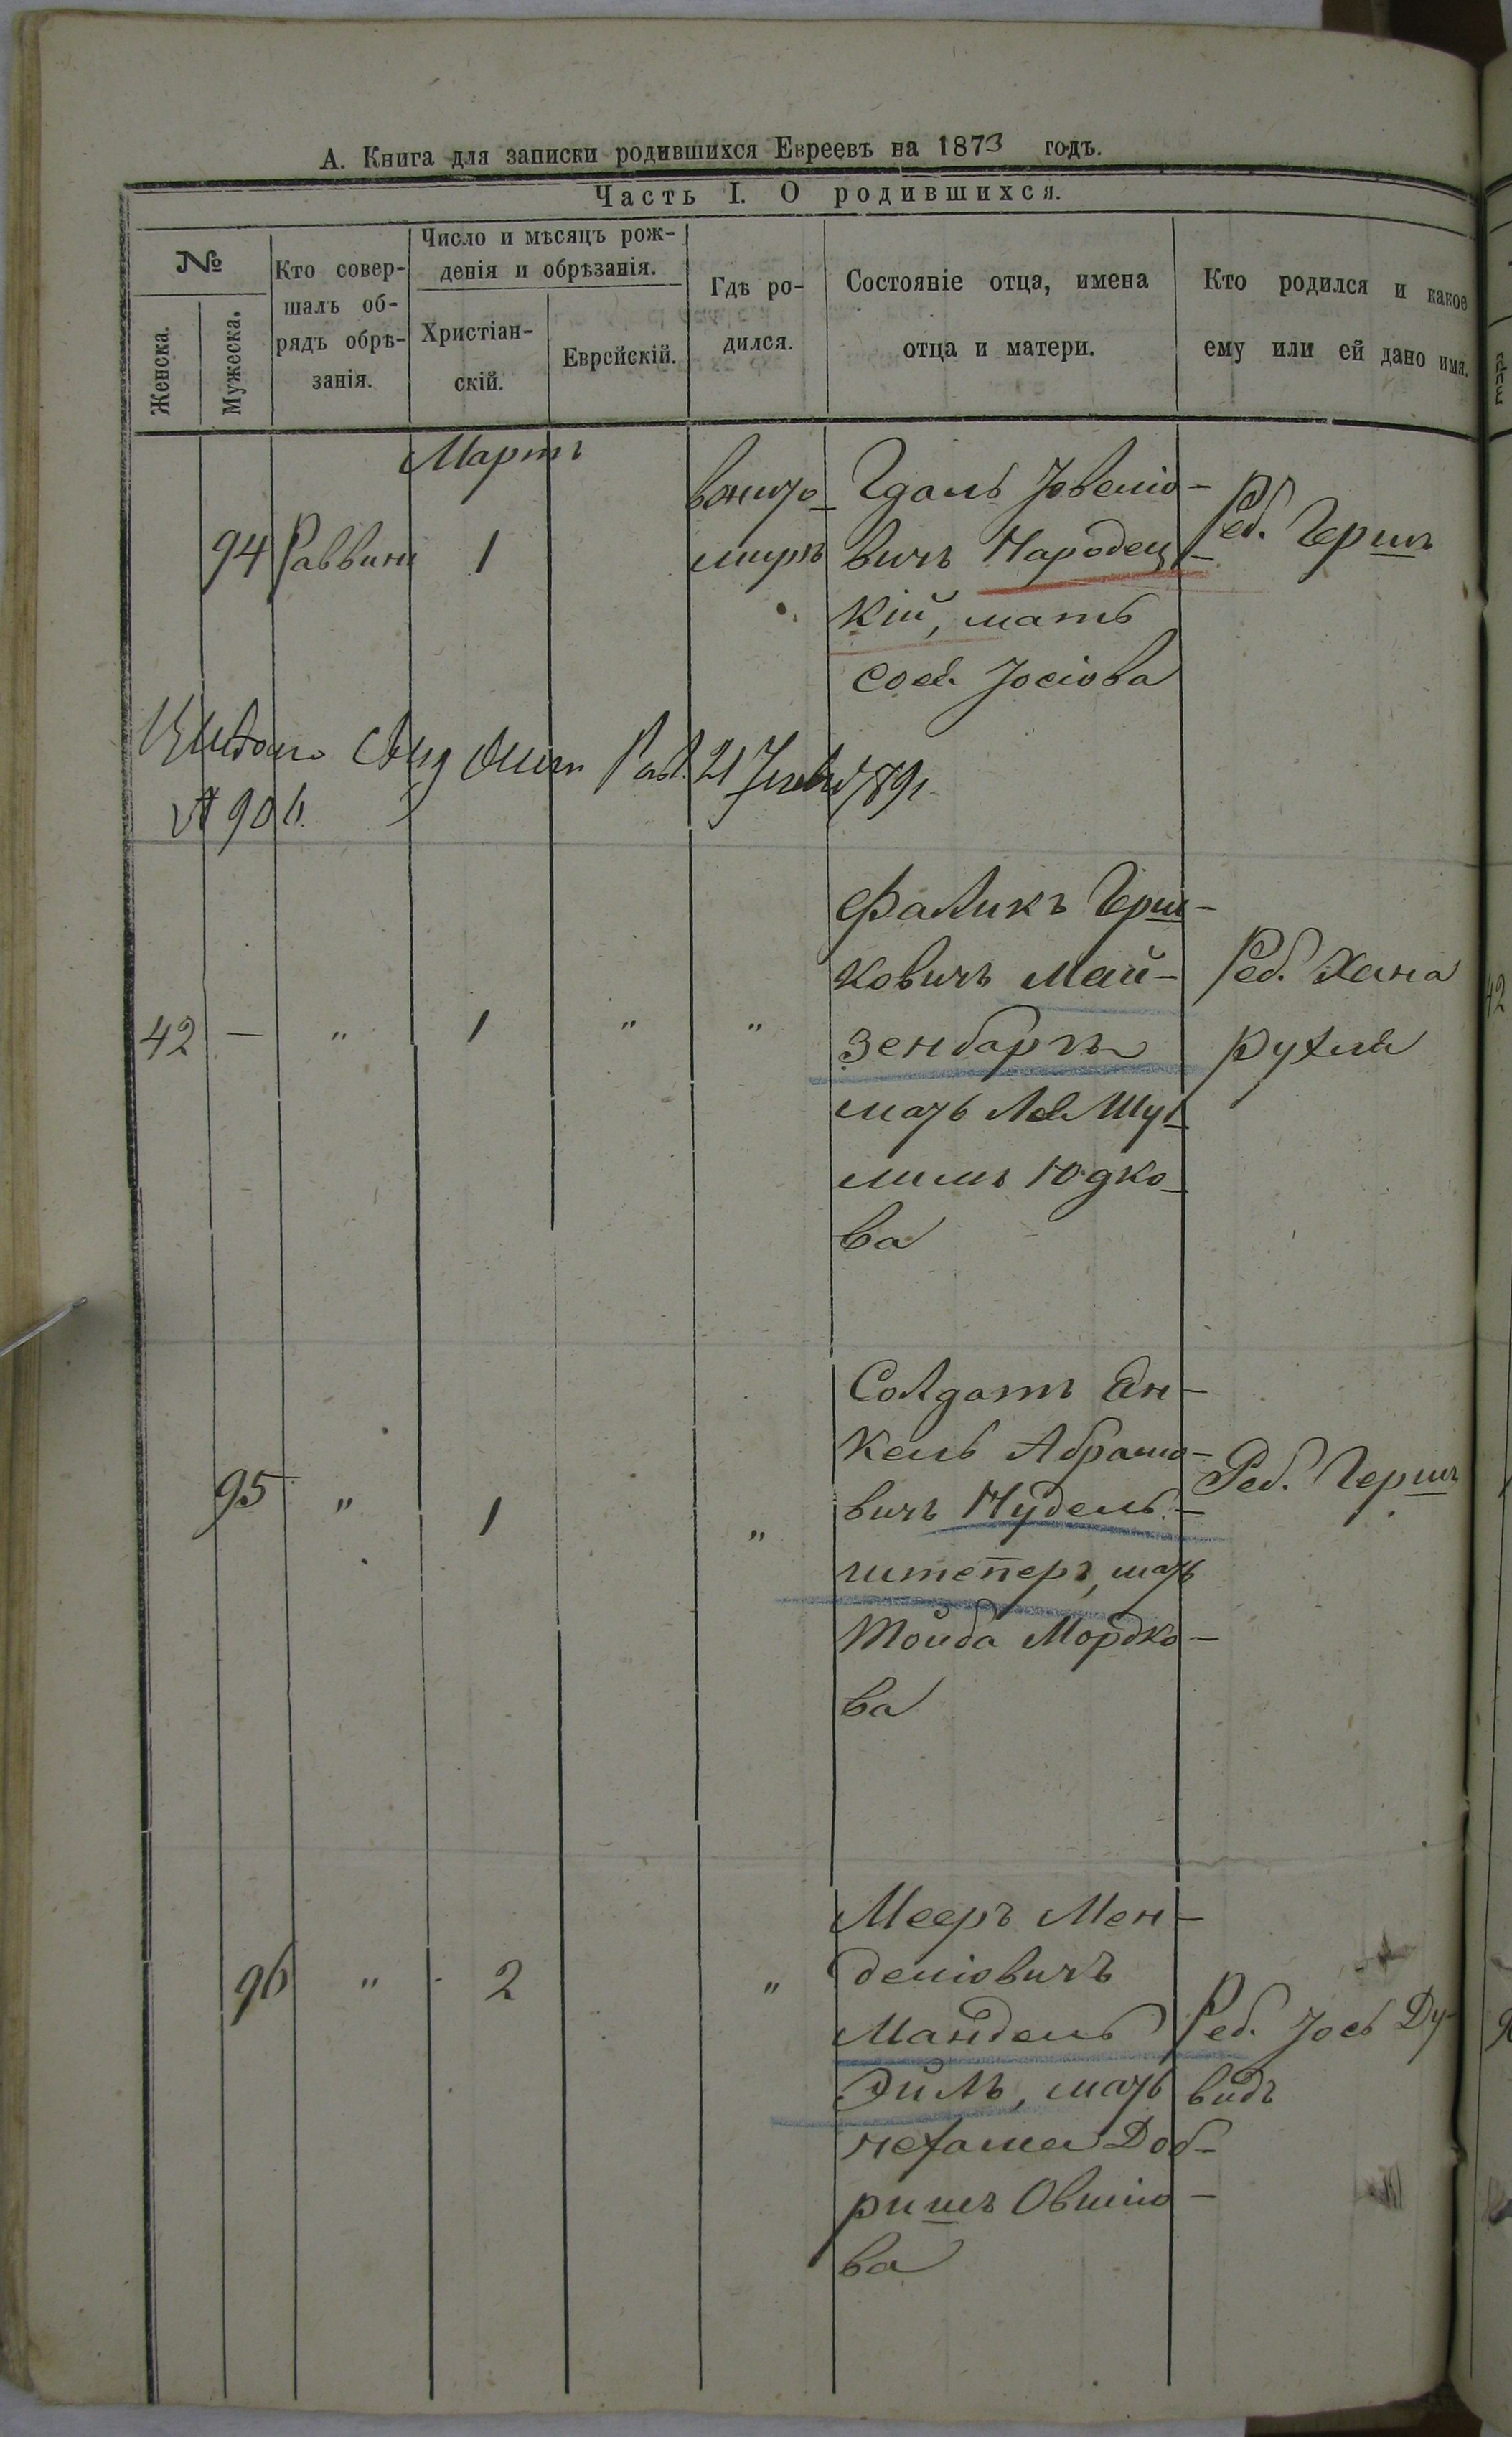 А. Книга для записки родившихся Евреевъ на 1873 годъ.
Часть I. О родившихся.
№
Женска.
Мужеска.
Кто совер-
шалъ об-
рядъ обрѣ-
занія.
Число и мѣсяцъ рож-
денія и обрѣзанія.
Христіан-
скій.
Еврейскій.
Гдѣ ро-
дился.
Состояніе отца, имена
отца и матери.
Кто родился и какое
ему или ей дано имя.
Мартъ
94 Раввинъ 1
вжито-
миръ
Гдаль
вичъ Народец-
кій, мать
Іосіова
Реб. Гершъ
21 1891
№ 906.
42 — " 1 " "
Фаликъ Герш-
ковичъ Май-
зенбаргъ
мать Шу-
Юдко-
ва
Реб. Хана
рухля
95 " 1 "
Солдатъ Ян-
кель Абрамо-
вичъ Нудель-
штеперъ, мать
Тойба Мордко-
ва
Реб. Гершъ
96 " 2 "
Мееръ Мен-
деліовичъ
Мандель
Эйль, мать
нехама Доб-
ришъ Овшіо-
ва
Реб. Іось Ду-
видъ